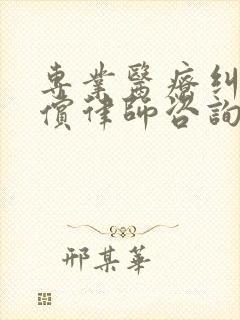 專業醫療糾
償律師咨詢
邢某華